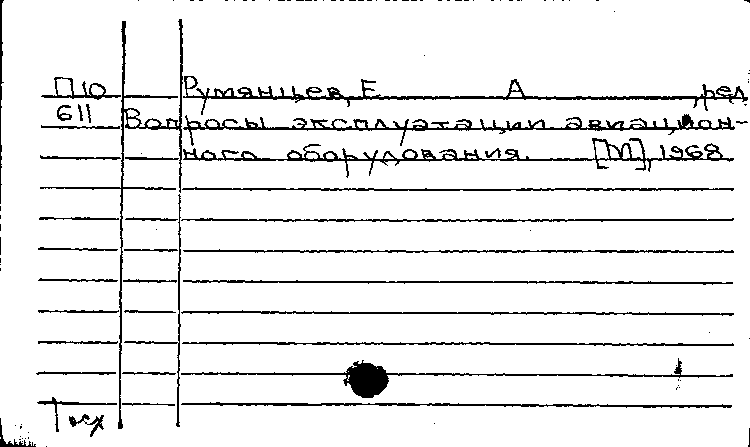 П10 Румянцев, Е А , ред
611 Вопросы эксплуатации авиацион-
ного оборудования. [М], 1968
Тех